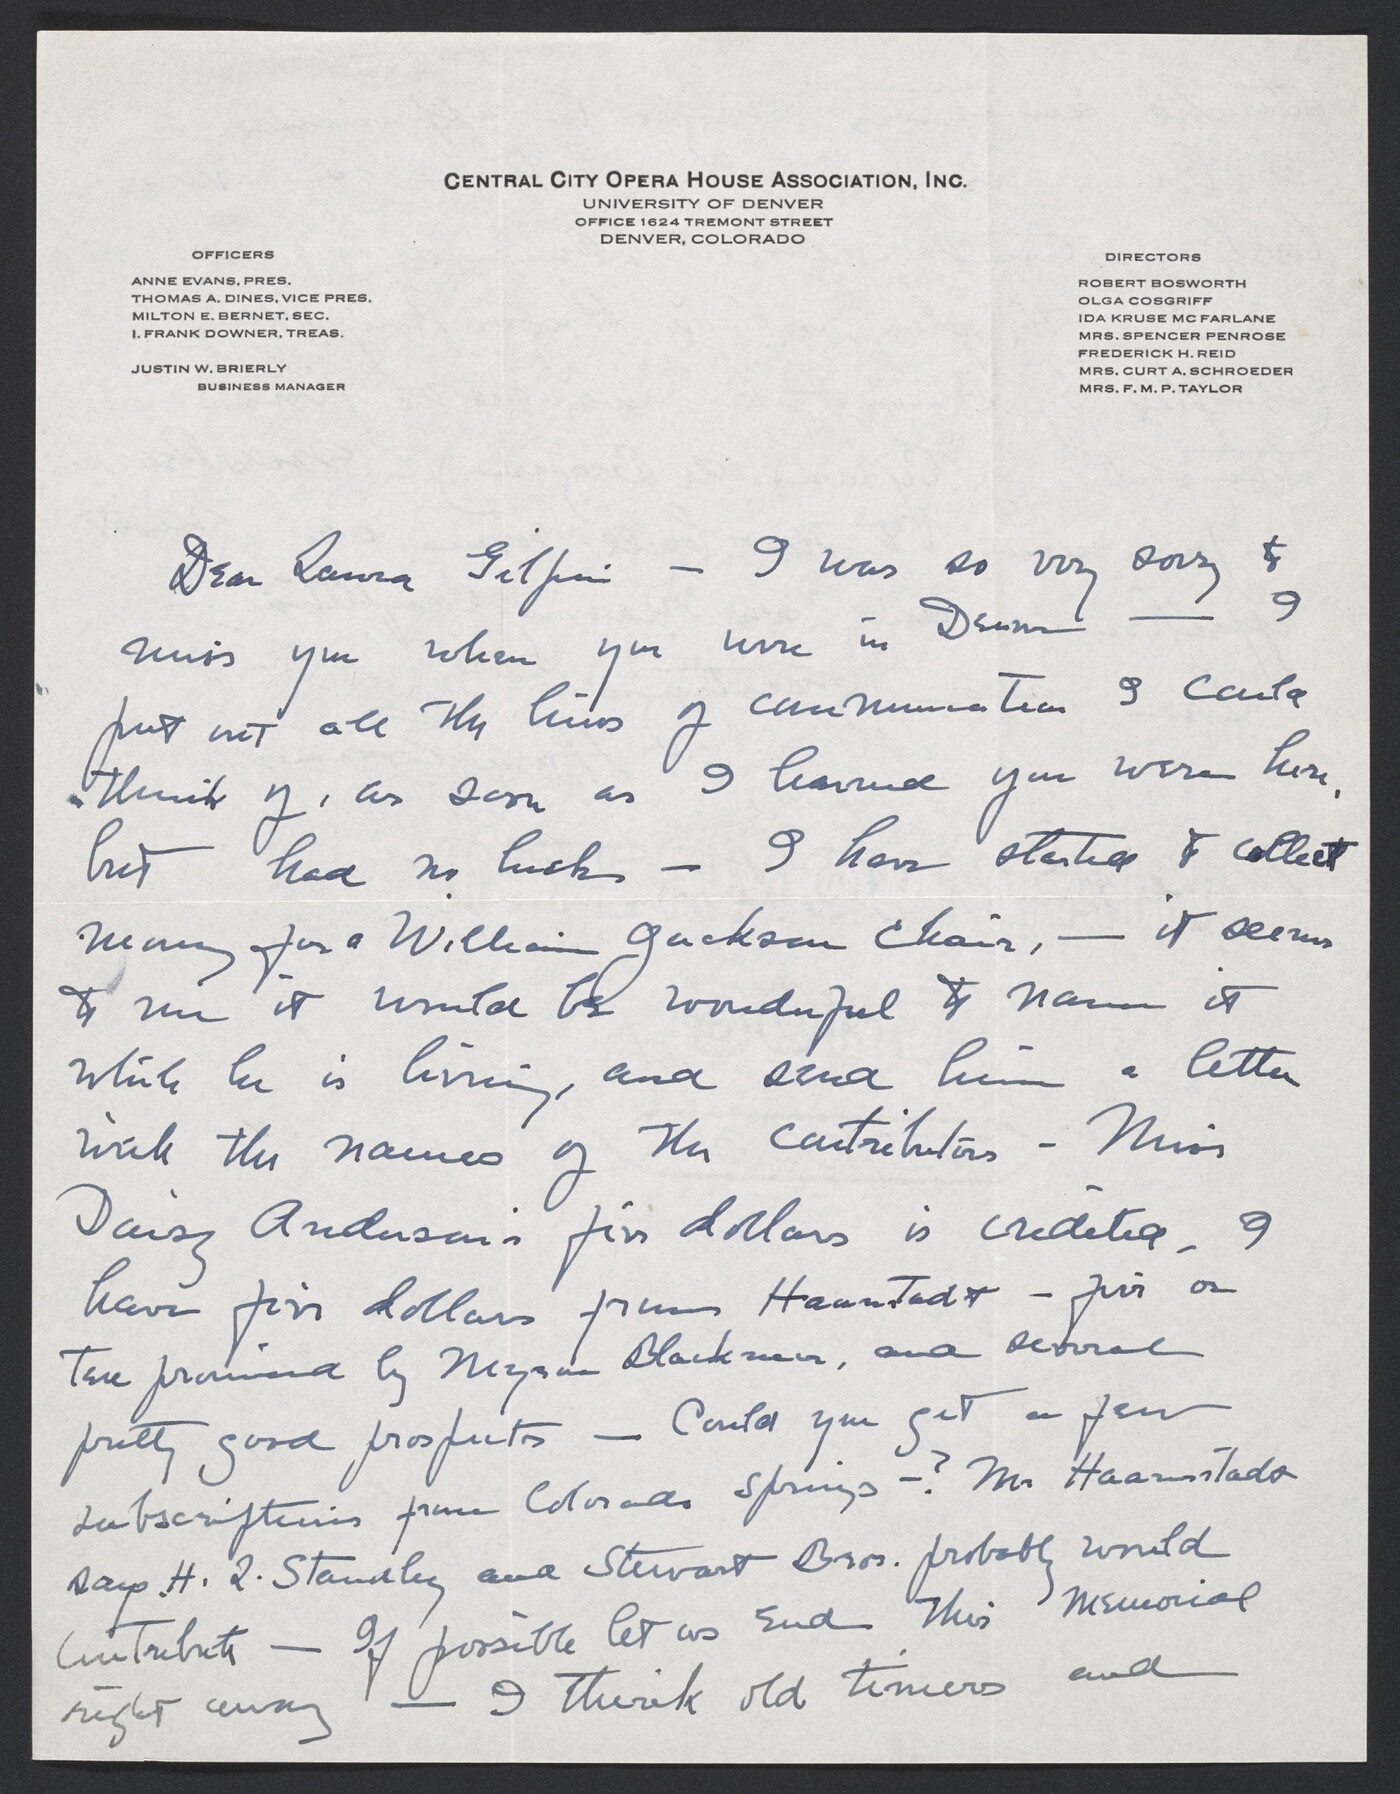 CENTRAL CITY OPERA HOUSE ASSOCIATION, INC.
UNIVERSITY OF DENVER
OFFICE 1624 TREMONT STREET
DENVER, COLORADO
OFFICERS
ANNE EVANS, PRES.
THOMAS A. DINES, VICE PRES.
MILTON E. BERNET, SEC.
I. FRANK DOWNER, TREAS.
JUSTIN W. BRIERLY
BUSINESS MANAGER
DIRECTORS
ROBERT BOSWORTH
OLGA COSGRIFF
IDA KRUSE MC FARLANE
MRS. SPENCER PENROSE
FREDERICK H. REID
MRS. CURT A. SCHROEDER
MRS. F. M. P. TAYLOR
Dear Laura Gilpin — I was so very sorry to
miss you when you were in Denver — I
put out all the lines of communication I could
think of, as soon as I learned you were here,
but had no luck — I have started to collect
money for a William Jackson Chair, — it seems
to me it would be wonderful to name it
while he is living, and send him a letter
with the names of the contributors - Miss
Daisy Anderson's five dollars is credited - I
have five dollars from Haanstadt - five or
ten promised by Myron Blackmer, and several
pretty good prospects — Could you get a few
subscriptions from Colorado Springs -? Mr Haanstadt
says H. L. Standley and Stewart Bros. probably would
contribute — If possible let us end this memorial
right away — I think old timers and